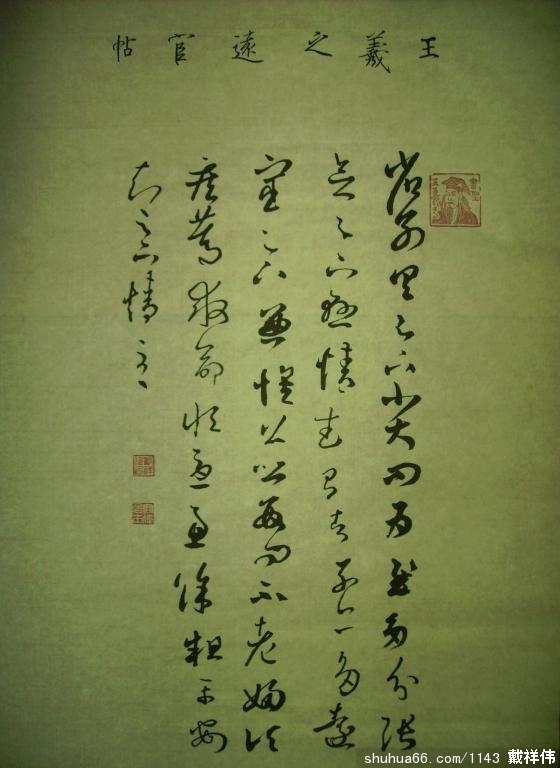 王羲之遠宦帖
省別具足下小大問為慰多分張
念足下懸情武昌諸子亦多遠
宦足下兼懷並數問不老婦頃
疾篤救命恒憂慮餘粗平安
知足下情至
shuhua66.com/1143 戴祥伟